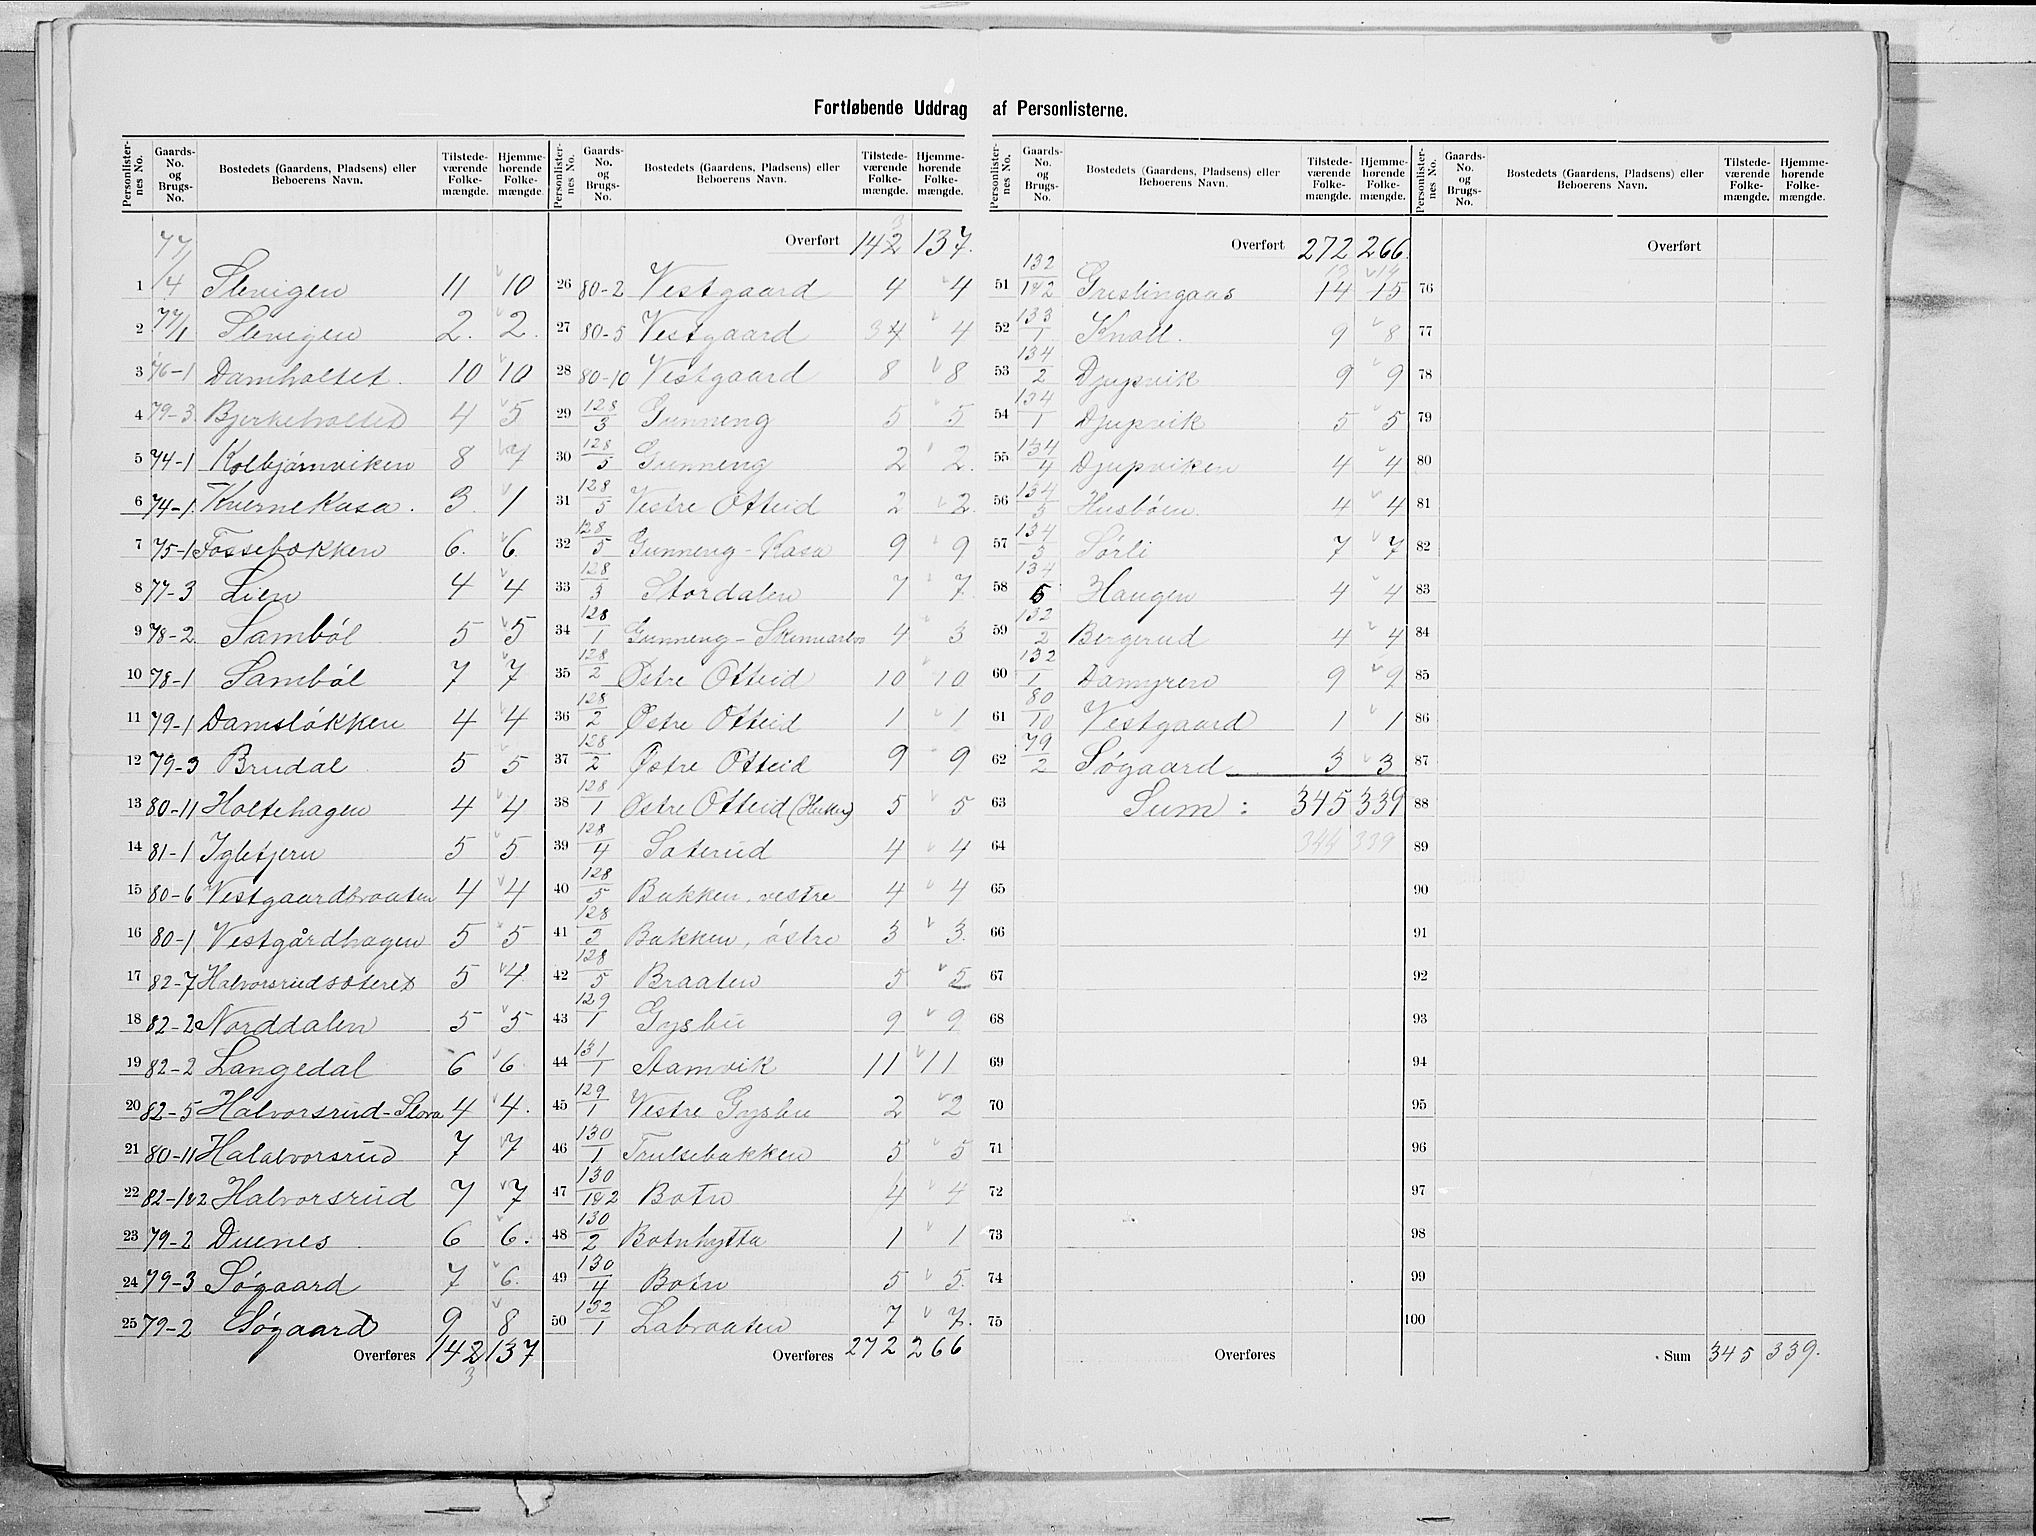 Fortløbende Uddrag af Personlisterne.
Personlisternes No. Gaards-No. og Brugs-No. Bostedets (Gaardens, Pladsens) eller Beboerens Navn. Tilstedeværende Folkemængde. Hjemmehørende Folkemængde.
1 77/4 Slevigen 11 10
2 77/1 Slevigen 2. 2.
3 76-1 Damholtet. 10 10
4 79-3 Bjerkeholtet 4 5
5 74-1 Kolbjørnviken 8 7
6 74-1. Kvernekasa. 3. 1
7 75-1 Fossebækken 6. 6.
8 77-3 Lien 4 4
9 78-2. Sambøl 5 5
10 78-1 Sambøl 7 7
11 79-1 Damsløkken 4 4
12 79-3 Brudal 5 5
13 80-11 Holtehagen 4 4
14 81-1 Igletjern 5 5
15 80-6 Vestgaardbraaten 4 4
16 80-1 Vestgårdhagen 5 5
17 82-7 Halvorsrudsæteret 5 4
18 82-2 Norddalen 5 5
19 82-2 Langedal 6 6
20 82-5 Halvorsrud-Slora 4 4.
21 80-11 Halalvorsrud 7 7
22 82-1&2 Halvorsrud 7 7
23 79-2 Duenes 6 6.
24 79-3 Søgaard 7 6.
25 79-2 Søgaard 9 8
Overføres 142 137
3
Personlisternes No. Gaards-No. og Brugs-No. Bostedets (Gaardens, Pladsens) eller Beboerens Navn. Tilstedeværende Folkemængde. Hjemmehørende Folkemængde.
3
Overført 142 137.
26 80-2 Vestgaard 4 4
27 80-5 Vestgaard 34 4
28 80-10 Vestgaard 8 8
29 128/3 Gunneng 5 5
30 128/5 Gunneng 2 2.
31 128/5 Vestre Otteid 2 2.
32 128/5 Gunneng-Kasa 9 9
33 128/3 Stordalen 7 7
34 128/1 Gunneng- 4 3
35 128/2 Østre Otteid 10 10
36 128/2 Østre Otteid 1 1
37 128/2 Østre Otteid 9 9
38 128/1 Østre Otteid 5 5
39 128/4 Sæterud 4 4
40 128/5 Bakken, vestre 4 4
41 128/2 Bakken, østre 3 3.
42 128/5 Braaten 5 5
43 129/1 Gysbu 9 9
44 131/1 Aamvik 11 11
45 129/1 Vestre Gysbu 2 2
46 130/1 Trulsebakken 5 5
47 130/1&2 Botn 4 4
48 130/2 Botnhytta 1 1
49 130/4 Botn 5 5.
50 132/1 Labraaten 7 7.
Overføres 272 266
Personlisternes No. Gaards-No. og Brugs-No. Bostedets (Gaardens, Pladsens) eller Beboerens Navn. Tilstedeværende Folkemængde. Hjemmehørende Folkemængde.
Overført 272 266.
13 14
51 132/1&2 Grislingaas 14 15
52 133/1 Knoll. 9 8
53 134/2 Djupvik 9 9
54 134/1 Djupvik 5 5
55 134/4 Djupviken 4 4
56 134/5 Husbøen. 4 4
57 134/3 Sørli 7 7
58 134/6 Haugen 4 4
59 132/2 Bergerud 4 4
60 132/1 Damyren 9 9
61 80/10 Vestgaard 1 1
62 79/2 Søgaard 3 3
63 Sum: 345 339
64 344 339
65
66
67
68
69
70
71
72
73
74
75
Overføres
Personlisternes No. Gaards-No. og Brugs-No. Bostedets (Gaardens, Pladsens) eller Beboerens Navn. Tilstedeværende Folkemængde. Hjemmehørende Folkemængde.
Overført
76
77
78
79
80
81
82
83
84
85
86
87
88
89
90
91
92
93
94
95
96
97
98
99
100
Sum 345 339.